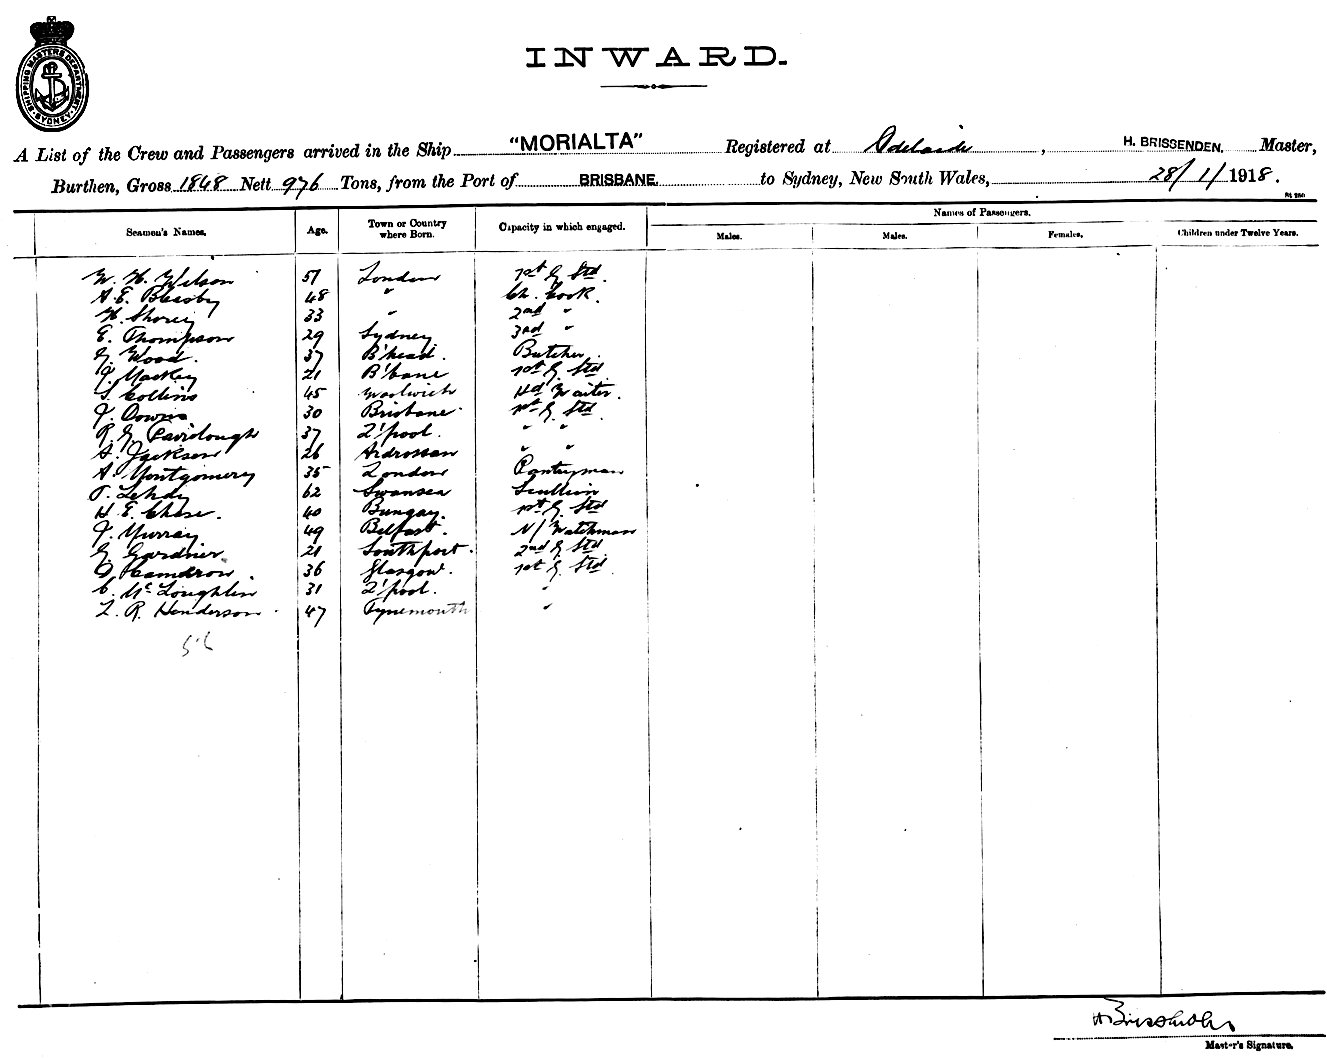 SHIPPING MASTERS DEPARTMENT SYDNEY
INWARD.
A List of the Crew and Passengers arrived in the Ship "MORIALTA" Registered at Adelaide, H. BRISSENDEN, Master,
Burthen, Gross 1848 Nett 976 Tons, from the Port of BRISBANE. to Sydney, New South Wales, 28/1/1918.
Names of Passengers.
Seamen's Names. Age. Town or Country where Born. Capacity in which engaged. Males. Males. Females. Children under Twelve Years.
W. H. Wilson 51 London 1st G Std.
A. E. 48 " Ch. Cook.
H. Shorey 33 " 2nd "
E. Thompson 29 Sydney 3rd "
G. Wood. 37 B'head. Butcher.
J. Mackey 21 B'bane 1st G Std
S. Collins 45 Woolwich Hd Waiter.
J. Downs 30 Brisbane. 1st G. Std.
R. G. 37 L'pool. " "
A. Jackson 26 Ardrossan " "
A. Montgomery 35 London Pantryman
T. 62 Swansea Scullion
H. E. Chase. 40 Bungay. 1st G. Std
J. Murray 49 Belfast. N/Watchman
G. Gardner 21 Southport. 2nd G. Std
36 Glasgow. 1st G. Std.
C. McLoughlin 31 L'pool. "
L. R. Henderson. 47 Tynemouth "
Master's Signature.